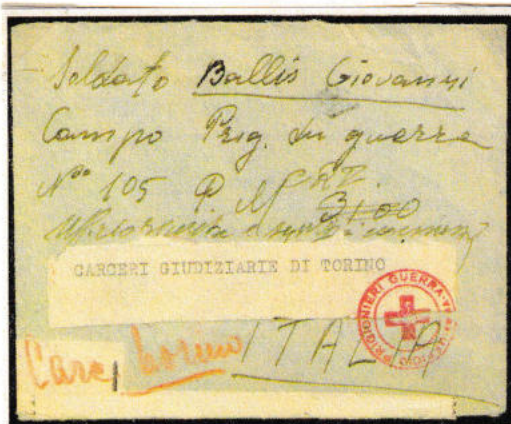 Soldato Ballis Giovanni
Campo Prig. di guerra
N° 105 P M
3100
CARCERI GIUDIZIARIE DI TORINO
PRIGIONIERI GUERRA
Carc Torino ITALIA